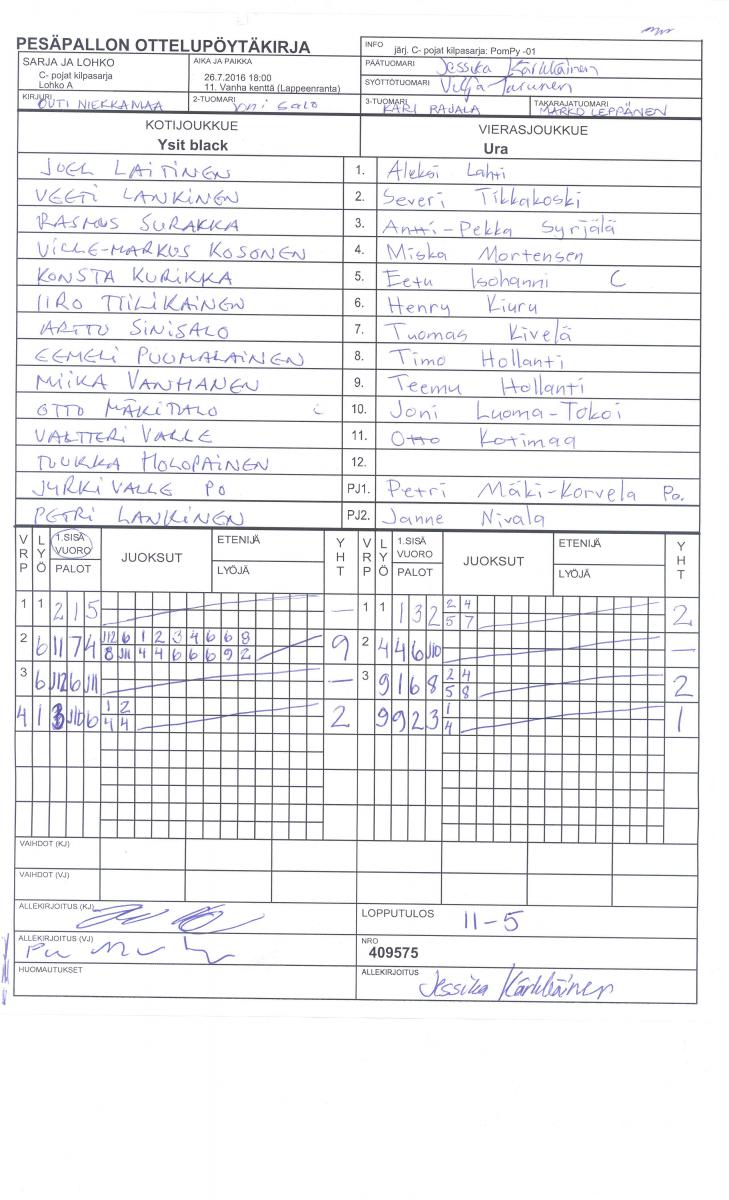 PESÄPALLON OTTELUPÖYTÄKIRJA
INFO järj. C- pojat kilpasarja: PomPy -01
SARJA JA LOHKO
C- pojat kilpasarja
Lohko A
AIKA JA PAIKKA
26.7.2016 18:00
11. Vanha kenttä (Lappeenranta)
PÄÄTUOMARI Jessika Kärkkäinen
SYÖTTÖTUOMARI
KIRJURI OUTI NIEKKAMAA
2-TUOMARI Joni Salo
3-TUOMARI KARI RAJALA
TAKARAJATUOMARI MARKO LEPPÄNEN
KOTIJOUKKUE
Ysit black
VIERASJOUKKUE
Ura
JOEL LAITINEN 1. Aleksi Lahti
VEETI LANKINEN 2. Severi Tikkakoski
RASMUS SURAKKA 3. Antti-Pekka Syrjälä
VILLE-MARKUS KOSONEN 4. Miska Mortensen
KONSTA KURIKKA 5. Eetu Isohanni C
IIRO TIILIKAINEN 6. Henry Kiuru
ARTTU SINISALO 7. Tuomas Kivelä
EEMELI PUUMALAINEN 8. Timo Hollanti
MIIKA VANHANEN 9. Teemu Hollanti
OTTO MÄKITALO C 10. Joni Luoma-Tokoi
VALTTERI VALLE 11. Otto Kotimaa
TUUKKA HOLOPAINEN 12.
JYRKI VALLE PO PJ1. Petri Mäki-Korvela Po.
PETRI LANKINEN PJ2. Janne Nivala
VRP LYÖ 1.SISÄ VUORO PALOT JUOKSUT ETENIJÄ LYÖJÄ YHT VRP LYÖ 1.SISÄ VUORO PALOT JUOKSUT ETENIJÄ LYÖJÄ YHT
1 1 2 1 5 — 1 1 1 3 2 2 4 2
5 7
2 6 11 7 4 J12 6 1 2 3 4 6 6 8 9 2 4 4 6 J10 —
8 J11 4 4 6 6 6 9 2
3 6 J12 6 J11 — 3 9 1 6 8 2 4 2
5 8
4 1 3 J10 6 1 2 2 9 9 2 3 1 1
4 4 4
VAIHDOT (KJ)
VAIHDOT (VJ)
ALLEKIRJOITUS (KJ)
LOPPUTULOS 11-5
ALLEKIRJOITUS (VJ)
NRO
409575
HUOMAUTUKSET
ALLEKIRJOITUS Jessika Kärkkäinen